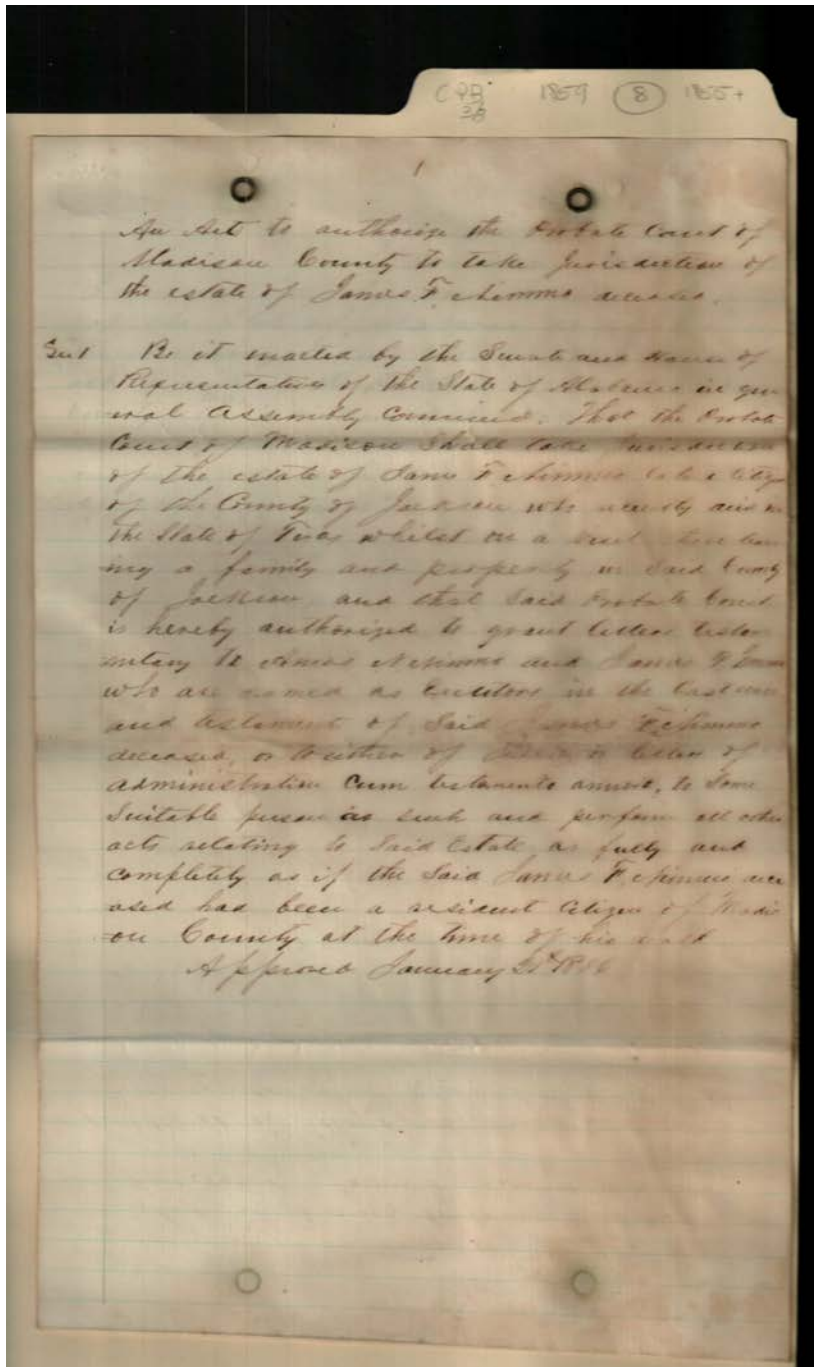 CPB 1859 8 1855+
38
1
An Act to authorize the Probate Court of
Madison County to take Jurisdiction of
the estate of James F. deceased.
Sec 1 Be it enacted by the Senate and House of
Representatives of the State of Alabama in gen
eral Assembly Convened. That the Probate
Court of Madison Shall take Jurisdiction
of the estate of James F late a citizen
of the County of Jackson who recently died in
the State of Texas whilst on a visit there leav
ing a family and property in Said County
of Jackson and that Said Probate Court
is hereby authorized to grant letters testam
entary to and James F
who are named as Executors in the last will
and testament of Said James F
deceased, or to either of them or letters of
administration Cum testamento annexo, to Some
Suitable person as such and perform all other
acts relating to Said Estate as fully and
completely as if the Said James F. dece
ased had been a resident Citizen of Madis
on County at the time of his death
Approved January 1856